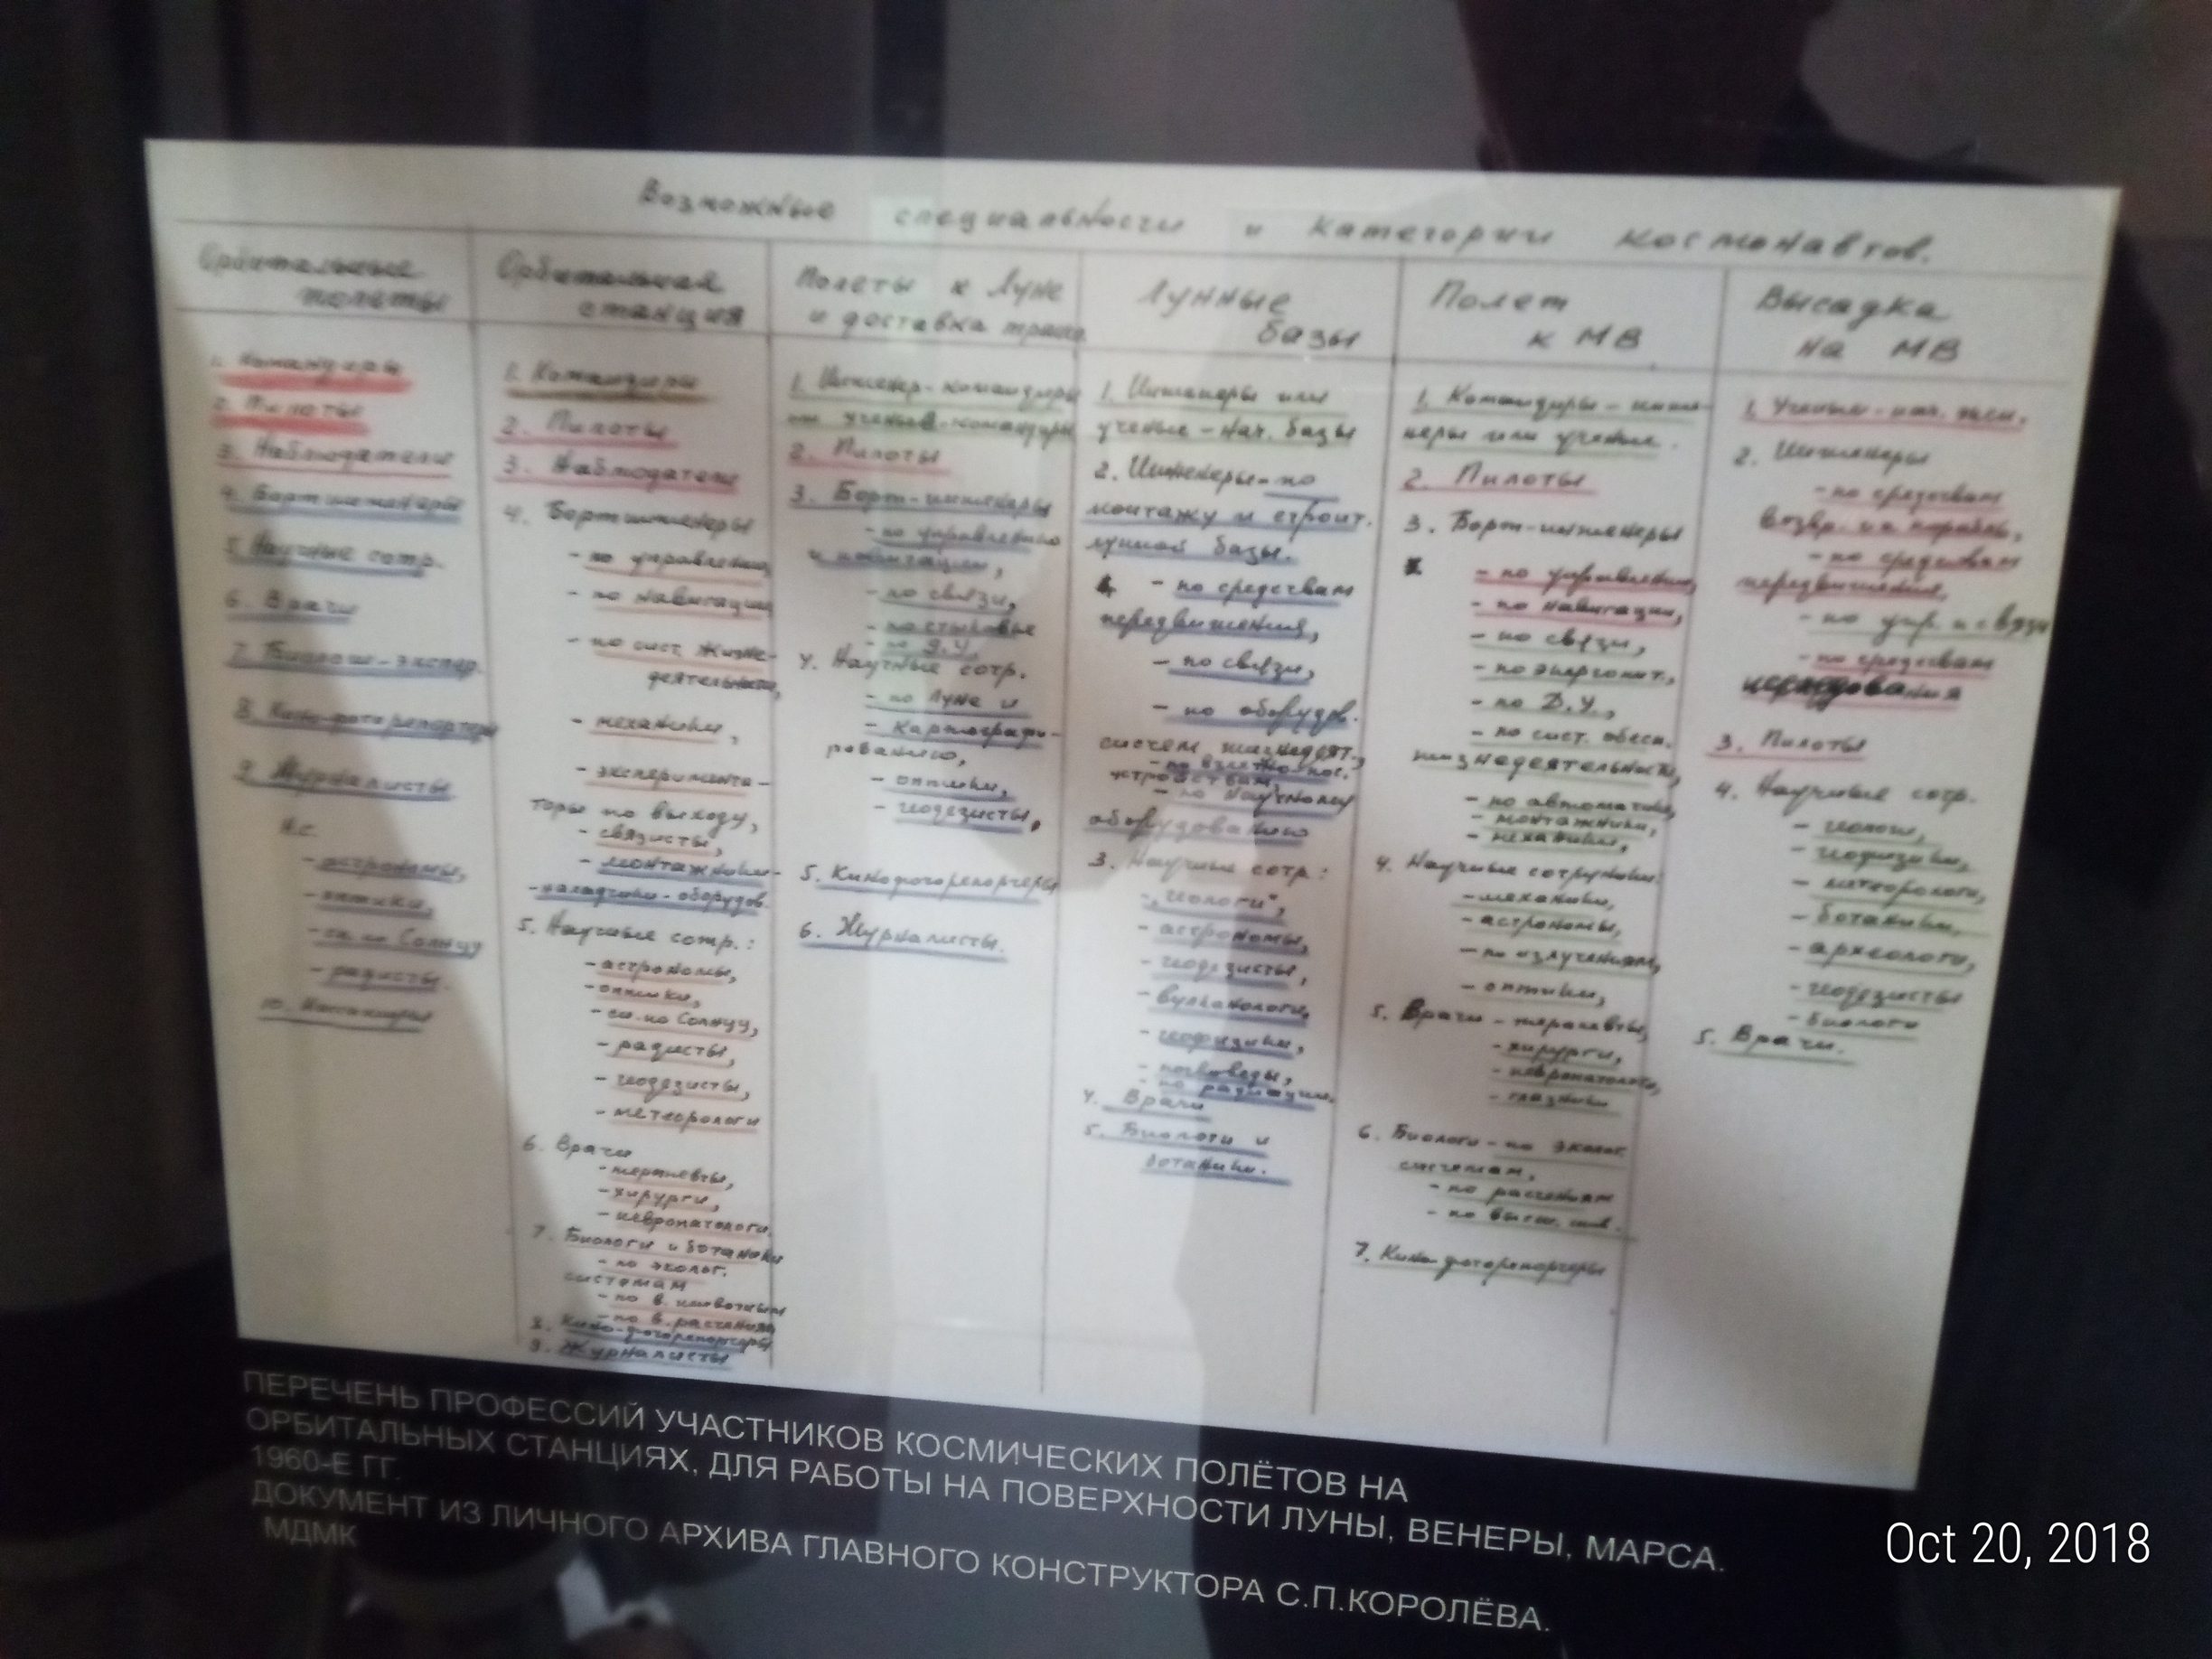 Возможные специальности и категории космонавтов.
Орбитальные
полеты
1. Командиры
2. Пилоты
3. Наблюдатели
4. Бортинженеры
5. Научные сотр.
6. Врачи
7. Биологи-экспер.
8. Кино-фоторепортеры
9. Журналисты
Н.с.
- астрономы,
- оптики,
- сп. по Солнцу
- радисты.
10.
Орбитальная
станция
1. Командиры
2. Пилоты
3. Наблюдатели
4. Бортинженеры
- по управлению,
- по навигации,
- по сист. жизне-
деятельности,
- механики,
- эксперимента-
торы по выходу,
- связисты,
- монтажники-
-наладчики-оборудов.
5. Научные сотр.:
- астрономы,
- оптики,
- сп. по Солнцу,
- радисты,
- геодезисты,
- метеорологи
6. Врачи
- терапевты,
- хирурги,
- невропатологи.
7. Биологи и ботаники
- по эколог.
системам
- по в. животным
- по в. растениям
8. Кино-фоторепортеры
9. Журналисты
Полеты к Луне
и доставка
1. Инженер-командиры
или ученые-командиры
2. Пилоты
3. Борт-инженеры
- по управлению
и навигации,
- по связи,
- по стыковке
- по Д.У.
4. Научные сотр.
- по Луне и
- картографи-
рованию,
- оптики,
- геодезисты,
5. Кинофоторепортеры
6. Журналисты.
Лунные
базы
1. Инженеры или
ученые - нач. базы
2. Инженеры-по
монтажу и строит.
лунной базы.
- по средствам
передвижения,
- по связи,
- по оборудов.
систем жизнедеят.,
- по взлетно-пос.
устройствам,
- по научному
оборудованию
3. Научные сотр:
- "геологи",
- астрономы,
- геодезисты,
- вулканологи,
- геофизики,
- почвоведы,
- по радиации.
4. Врачи
5. Биологи и
ботаники.
Полет
к МВ
1. Командиры - инже-
неры или ученые.
2. Пилоты
3. Борт-инженеры
- по управлению,
- по навигации,
- по связи,
- по энергопит.,
- по Д.У.,
- по сист. обесп.
жизнедеятельности,
- по автоматике,
- монтажники,
- механики,
4. Научные сотрудники:
- механики,
- астрономы,
- по излучениям,
- оптики,
5. Врачи - терапевты,
- хирурги,
- невропатологи,
- глазники
6. Биологи - по эколог.
системам,
- по растениям
- по высш. жив.
7. Кино-фоторепортеры
Высадка
на МВ
1. Ученые - нач. эксп.
2. Инженеры
- по средствам
возвр. на корабль,
- по средствам
передвижения,
- по упр. и связи
- по средствам
3. Пилоты
4. Научные сотр.
- геологи,
- геофизики,
- метеорологи,
- ботаники,
- археологи,
- геодезисты
- биологи
5. Врачи.
ПЕРЕЧЕНЬ ПРОФЕССИЙ УЧАСТНИКОВ КОСМИЧЕСКИХ ПОЛЁТОВ НА
ОРБИТАЛЬНЫХ СТАНЦИЯХ, ДЛЯ РАБОТЫ НА ПОВЕРХНОСТИ ЛУНЫ, ВЕНЕРЫ, МАРСА.
1960-Е ГГ.
ДОКУМЕНТ ИЗ ЛИЧНОГО АРХИВА ГЛАВНОГО КОНСТРУКТОРА С.П.КОРОЛЁВА.
МДМК
Oct 20, 2018